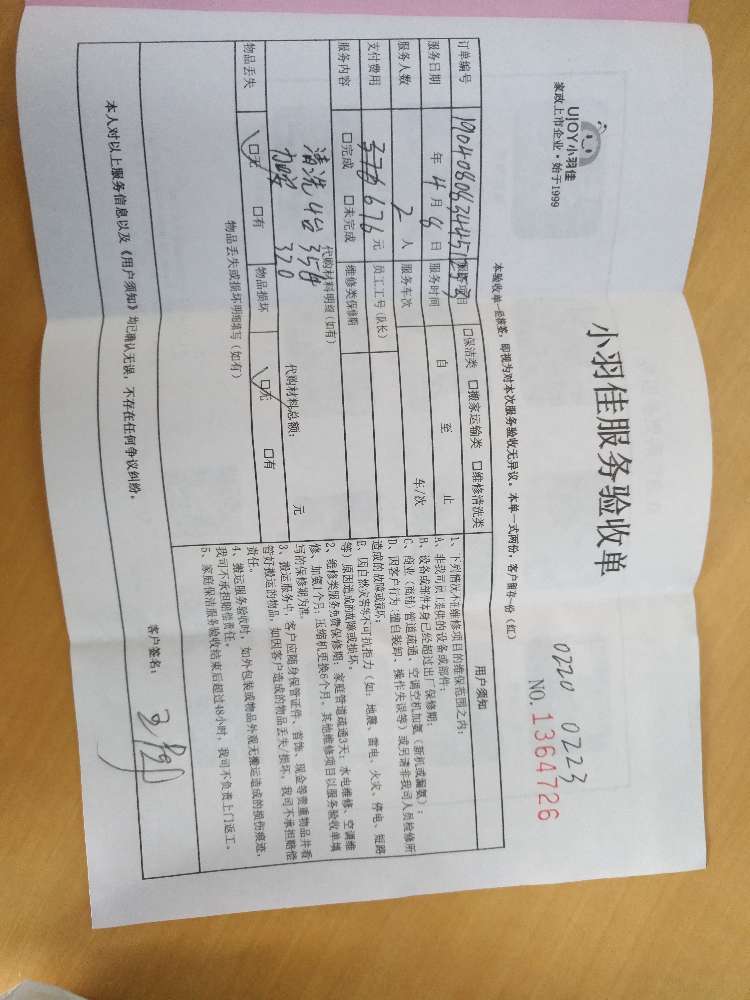 UJOY小羽佳
家政上市企业·始于1999
小羽佳服务验收单
0220 0223
NO. 1364726
本验收单一经签签，即视为对本次服务验收无异议。本单一式两份，客户留存一份（红）
订单编号
服务项目 □保洁类 □搬家运输类 □维修清洗类
服务日期 年 4 月 8 日 服务时间 自 至 止
服务人数 2 人 服务车次 车/次
支付费用 376 676 元 员工工号(队长)
服务内容 □完成 □未完成 维修类保修期
代购材料明细(如有)
清洗4台 356
320
代购材料总额: 元
物品丢失 □无 □有 物品损坏 □无 □有
物品丢失或损坏明细填写(如有)
本人对以上服务信息以及《用户须知》均已确认无误，不存在任何争议纠纷。
用户须知
1、下列情况不在维修项目的维保范围之内：
A、非我司员工提供的设备或部件；
B、设备或部件本身已经超过出厂保修期；
C、商业（商铺）管道疏通、空调空机加氨（新机或漏氨）；
D、因客户行为（擅自装卸、操作失误等）或另请非我司人员检修所
造成的故障或损坏；
E、因自然灾害等不可抗拒力（如：地震、雷电、火灾、停电、短路
等）原因造成的故障或损坏。
2、维修类服务免费保修期：家庭管道疏通3天；水电维修、空调维
修、加氨1个月；压缩机更换6个月。其他维修项目以服务验收单填
写的保修期为准。
3、搬运服务中，客户应随身保管证件、首饰、现金等贵重物品并看
管好搬运的物品，如因客户造成的物品丢失/损坏，我司不承担赔偿
责任。
4、搬运服务验收时，如外包装或物品外观无搬运造成的损伤痕迹，
我司不承担赔偿责任。
5、家庭保洁服务验收结束后超过48小时，我司不负责上门返工。
客户签名：